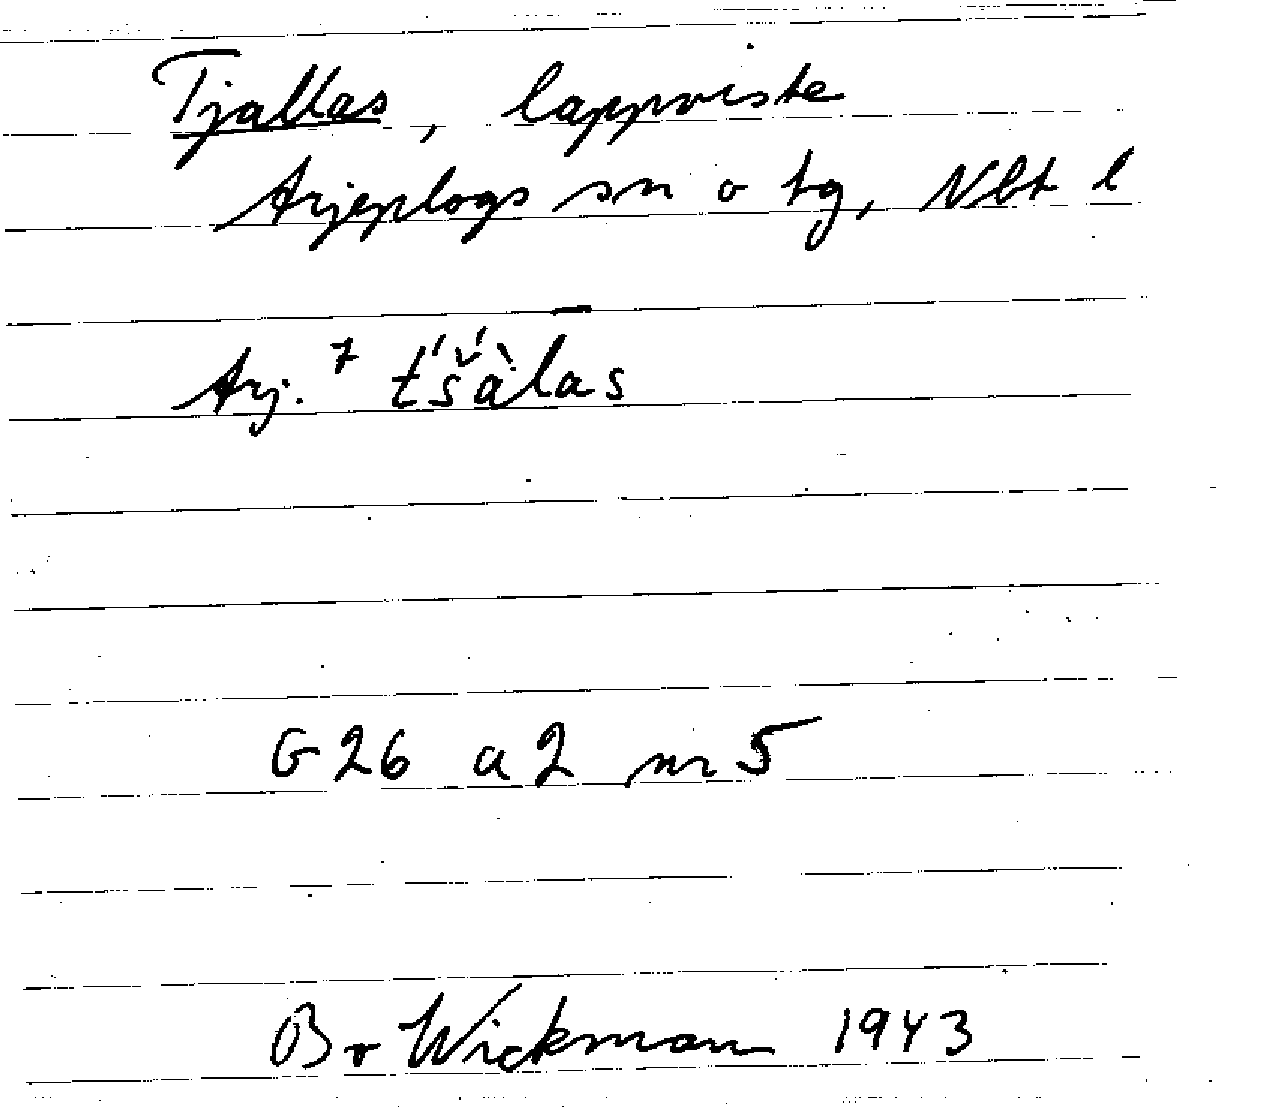 Tjallas, lappviste
Arjeplogs sn o tg, Nbt l
Arj. 7 t́š́àlas
G26 a2 nr 5
Bo Wickman 1943